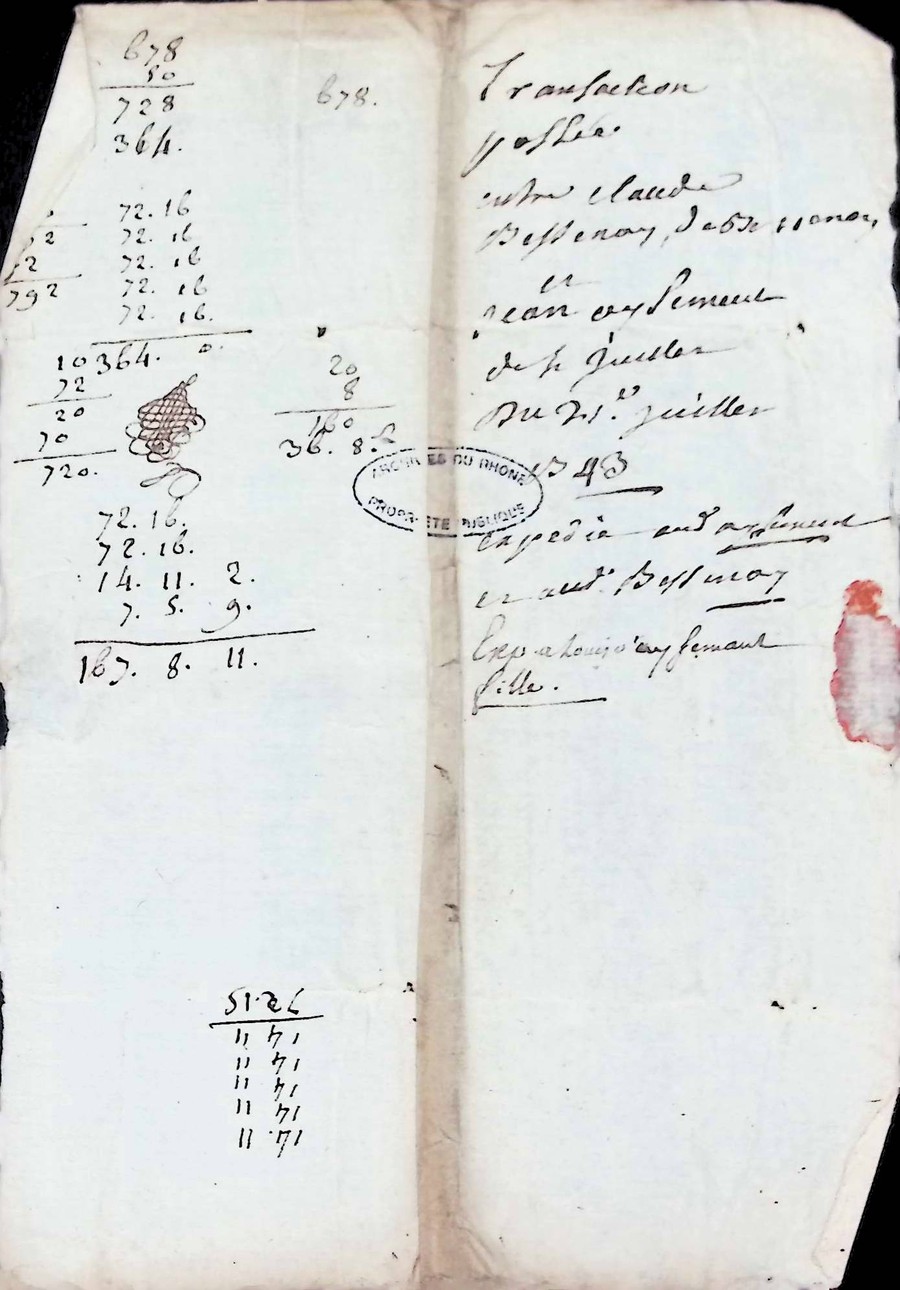 678
50
728
364.
72. 16
72. 16
72. 16
72. 16
72. 16.
364. 0.
792
10
72
20
70
720.
678.
20
8
160
36. 8.
72. 16.
72. 16.
14. 11. 2.
7. 5. 9.
167. 8. 11.
11 71
11 71
11 71
11 71
11 71
Transaction
passée
entre claude
Bessenay, de
et
jean aysement
de st juillen
Du 21.e juillet
1743
ARCHIVES DU RHONE
PROPRIÉTÉ PUBLIQUE
expedié aud aysement
et aud. Bessenay
Exp a aysement
fille.